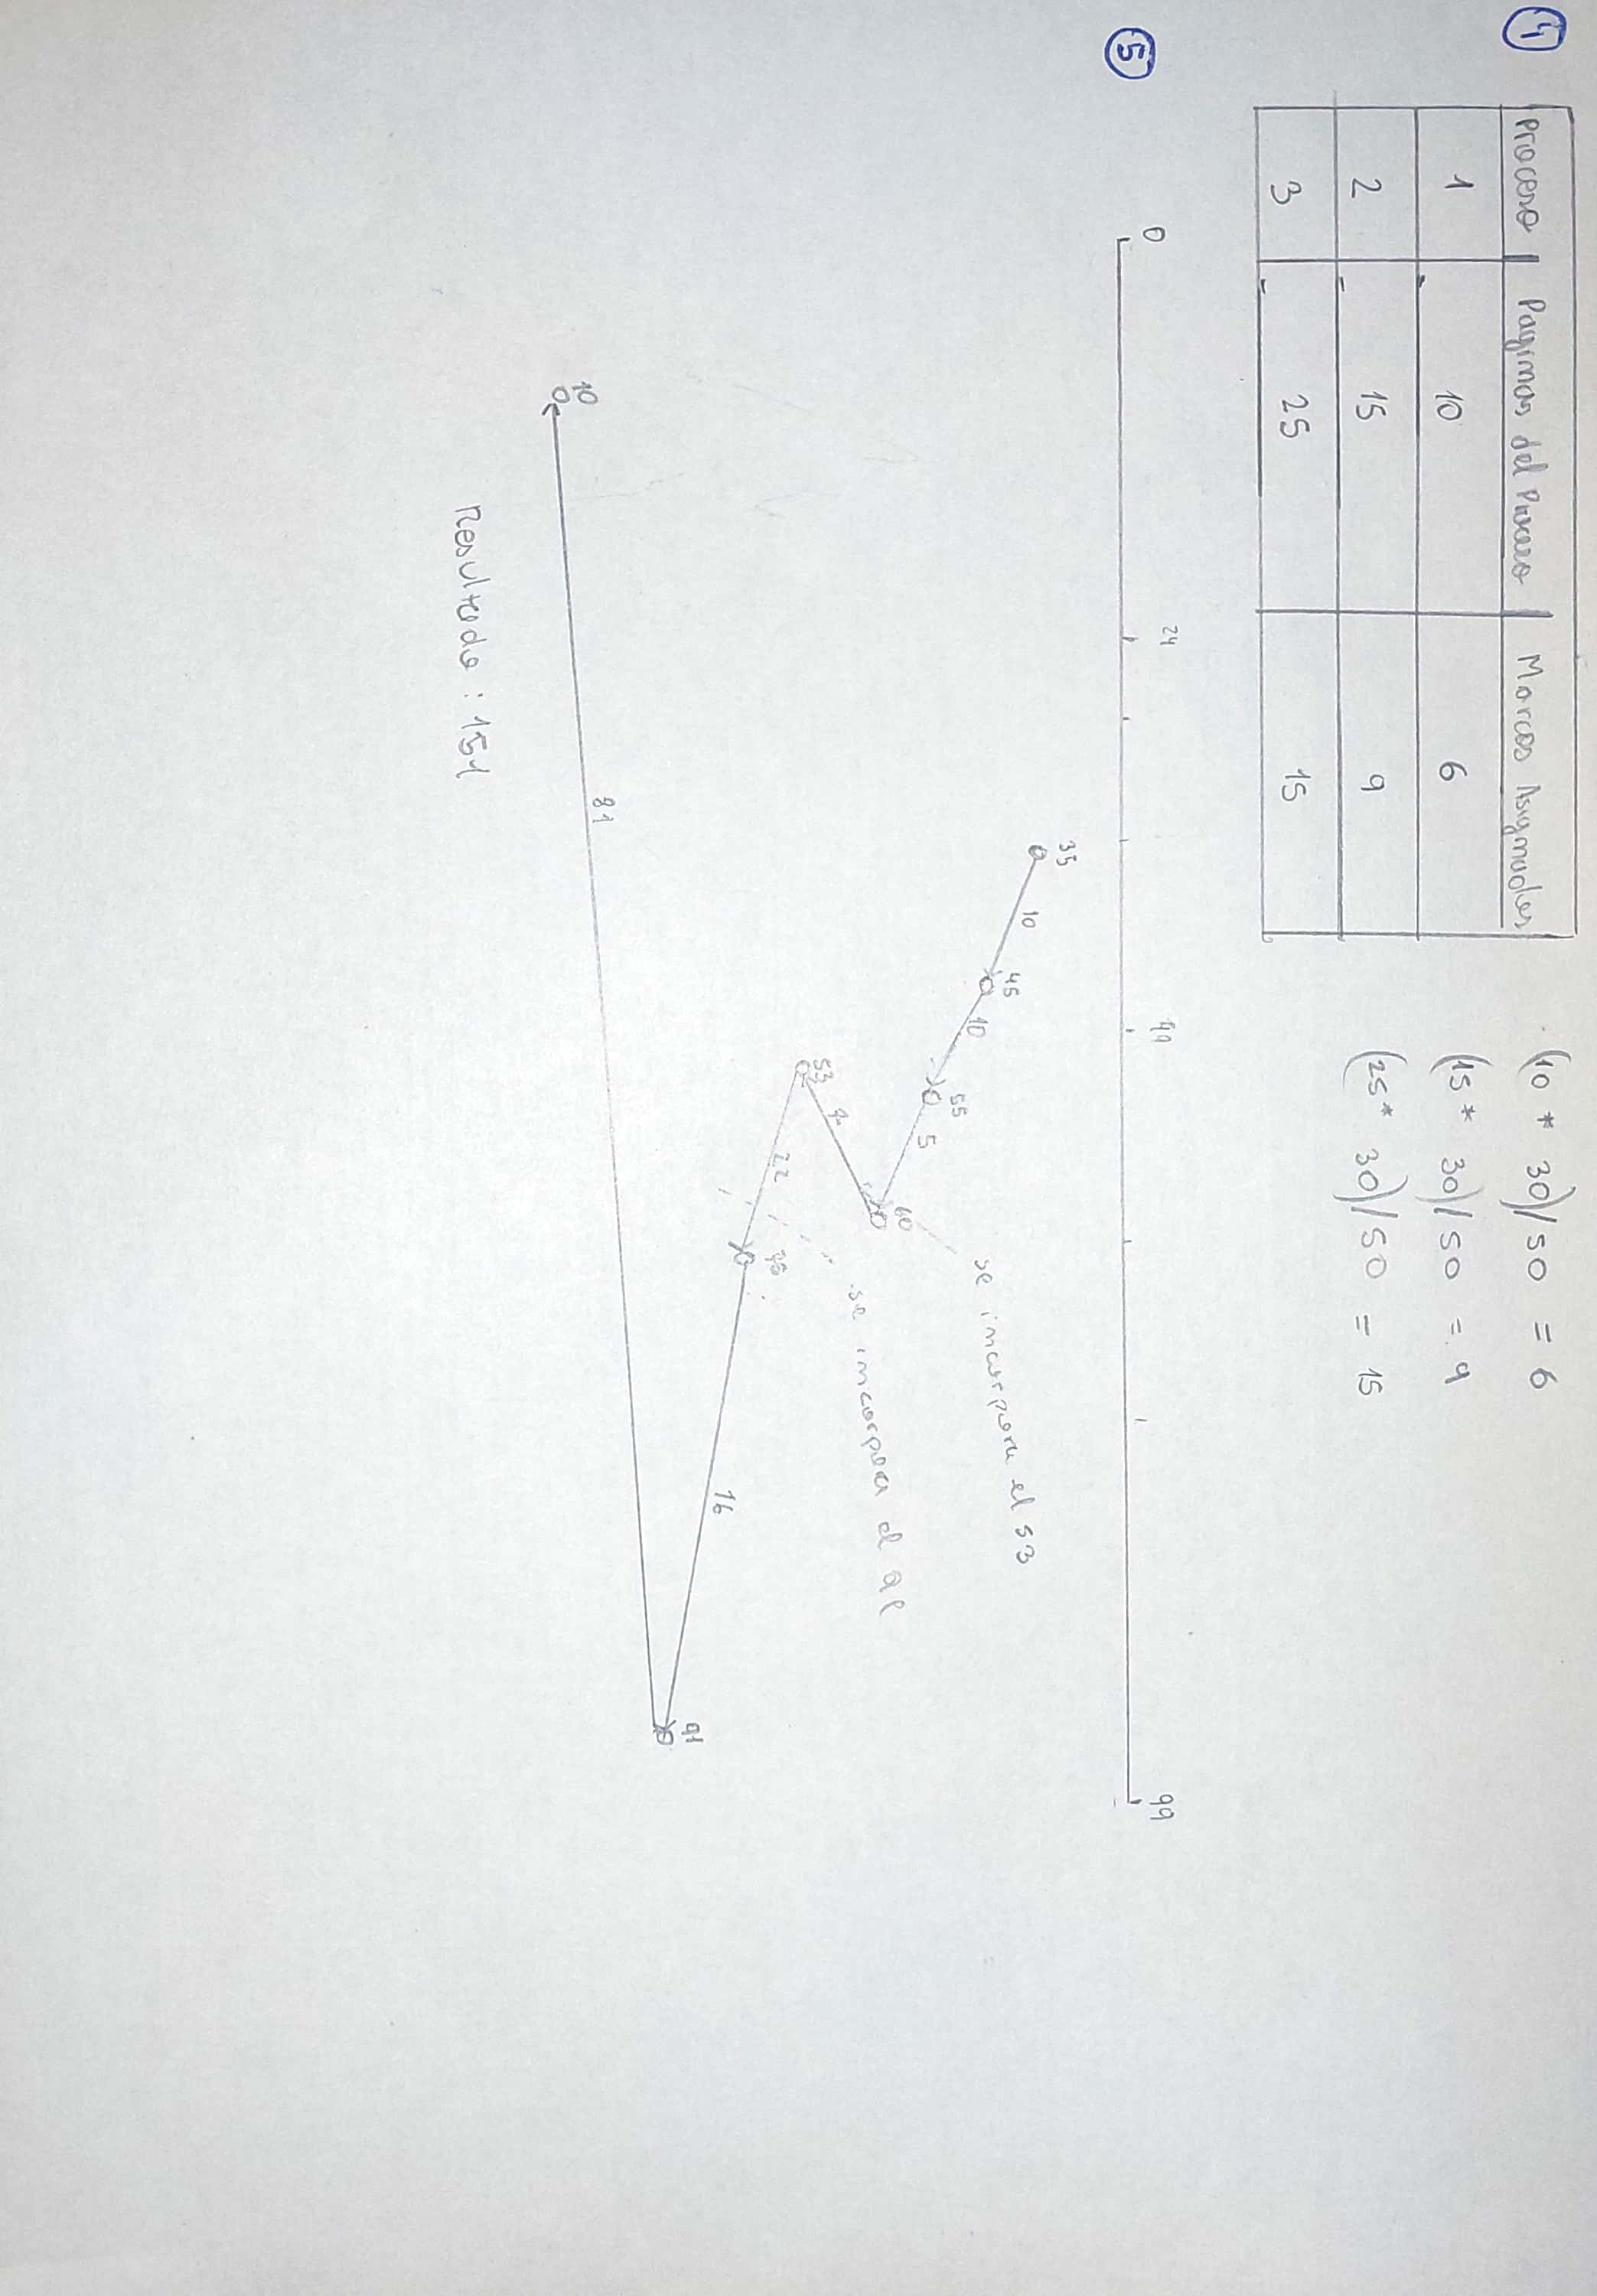 4
Proceso | Paginas del Proceso | Marcos Asignados
1 10 6
2 15 9
3 25 15
(10 * 30)/50 = 6
(15 * 30)/50 = 9
(25 * 30)/50 = 15
5
0 24 49 99
35
10
45
10
55
5
60
se incorpora el 53
7
53
22
75
se incorpora el
16
91
81
10
Resultado : 151